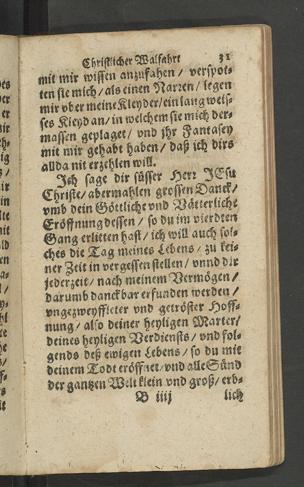 Christlicher Walfahrt 31
mit mir wissen anzufahen / verspot-
ten sie mich / als einen Narren / legen
mir vber meine Kleyder / ein lang weis-
ses Kleyd an / in welchem sie mich der-
massen geplaget / vnd jhr Fantasey
mit mir gehabt haben / daß ich dirs
allda nit erzehlen will.
Ich sage dir süsser Herr JEsu
Christe / abermahlen grossen Danck /
vmb dein Göttliche vnd Vätterliche
Eröffnung dessen / so du im vierdten
Gang erlitten hast / ich will auch sol-
ches die Tag meines Lebens / zu kei-
ner Zeit in vergessen stellen / vnnd dir
jederzeit / nach meinem Vermögen /
darumb danckbar erfunden werden /
vngezweyffleter vnd getröster Hoff-
nung / also deiner heyligen Marter /
deines heyligen Verdiensts / vnd fol-
gends deß ewigen Lebens / so du mit
deinem Todt eröffnet / vnd alle Sünd
der gantzen Welt klein vnd groß / erb-
B iiij lich